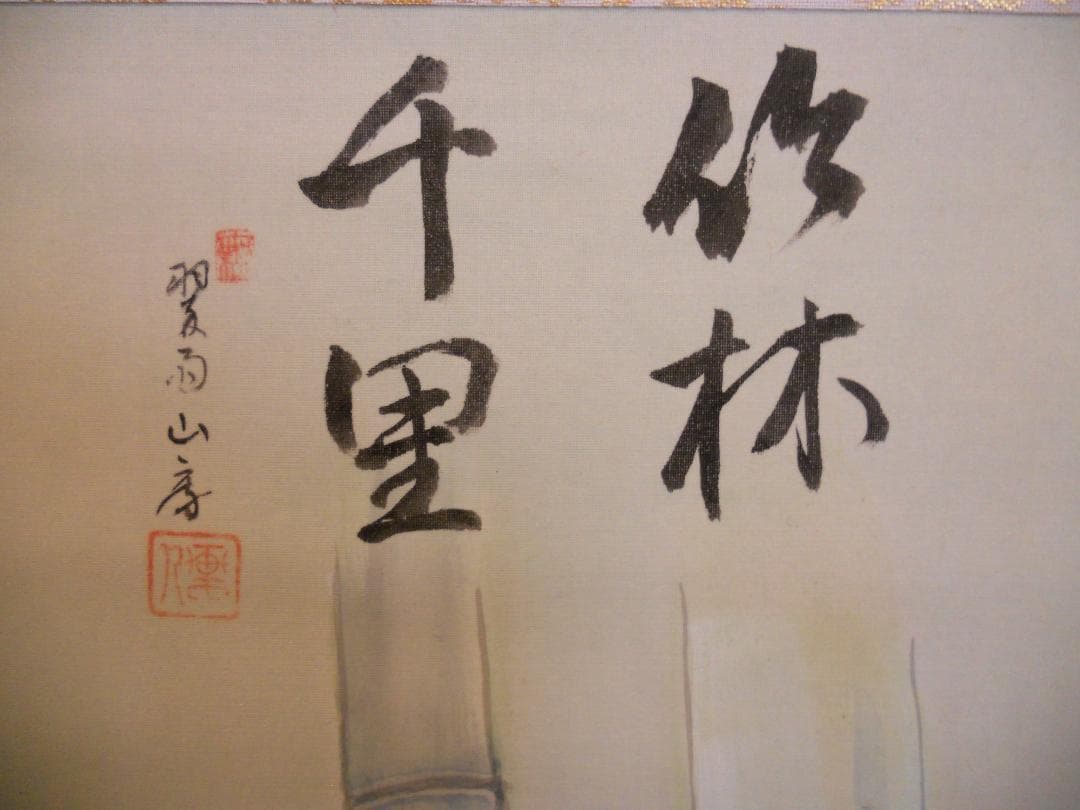 竹林
千里
翠雨山房